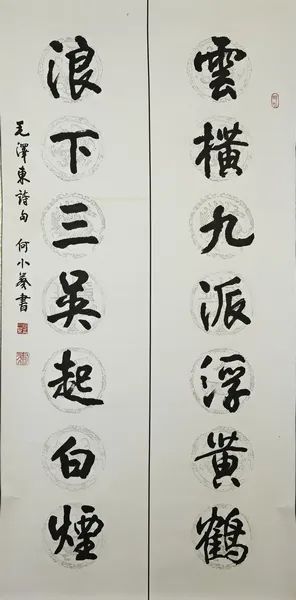 雲橫九派浮黃鶴
浪下三吳起白煙
毛澤東詩句 何小夢書